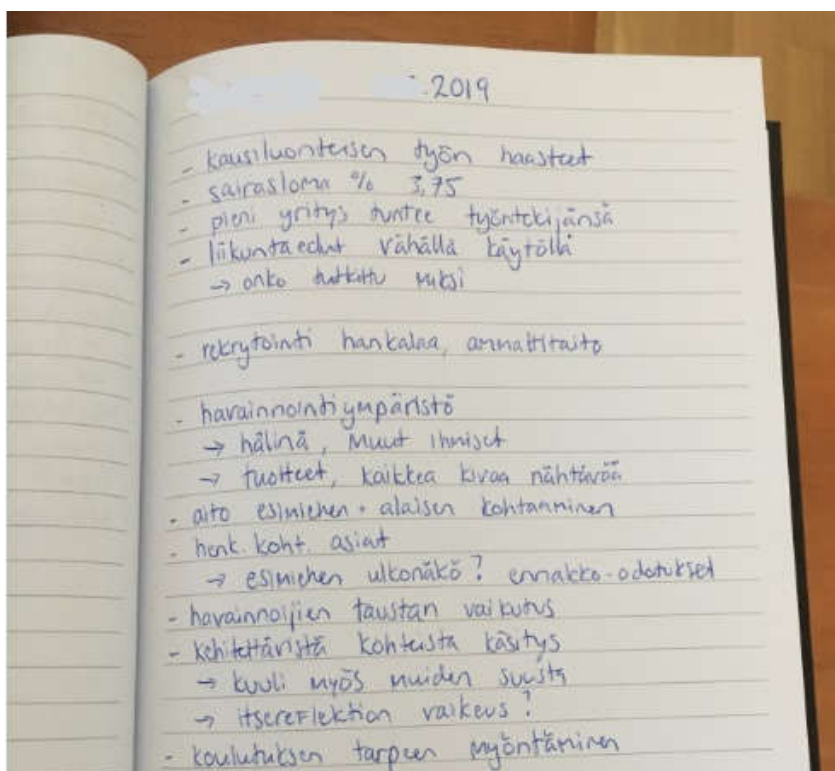 .2019
- kausiluonteisen työn haasteet
- sairasloma % 3,75
- pieni yritys tuntee työntekijänsä
- liikuntaedut vähällä käytöllä
→ onko tutkittu miksi
- rekrytointi hankalaa, ammattitaito
- havainnointiympäristö
→ hälinä, muut ihmiset
→ tuotteet, kaikkea kivaa nähtävää
- aito esimiehen - alaisen kohtaaminen
- henk. koht. asiat
→ esimiehen ulkonäkö? ennakko-odotukset
- havainnoijien taustan vaikutus
- kehitettävistä kohteista käsitys
→ kuuli myös muiden suusta
→ itsereflektion vaikeus?
- koulutuksen tarpeen myöntäminen